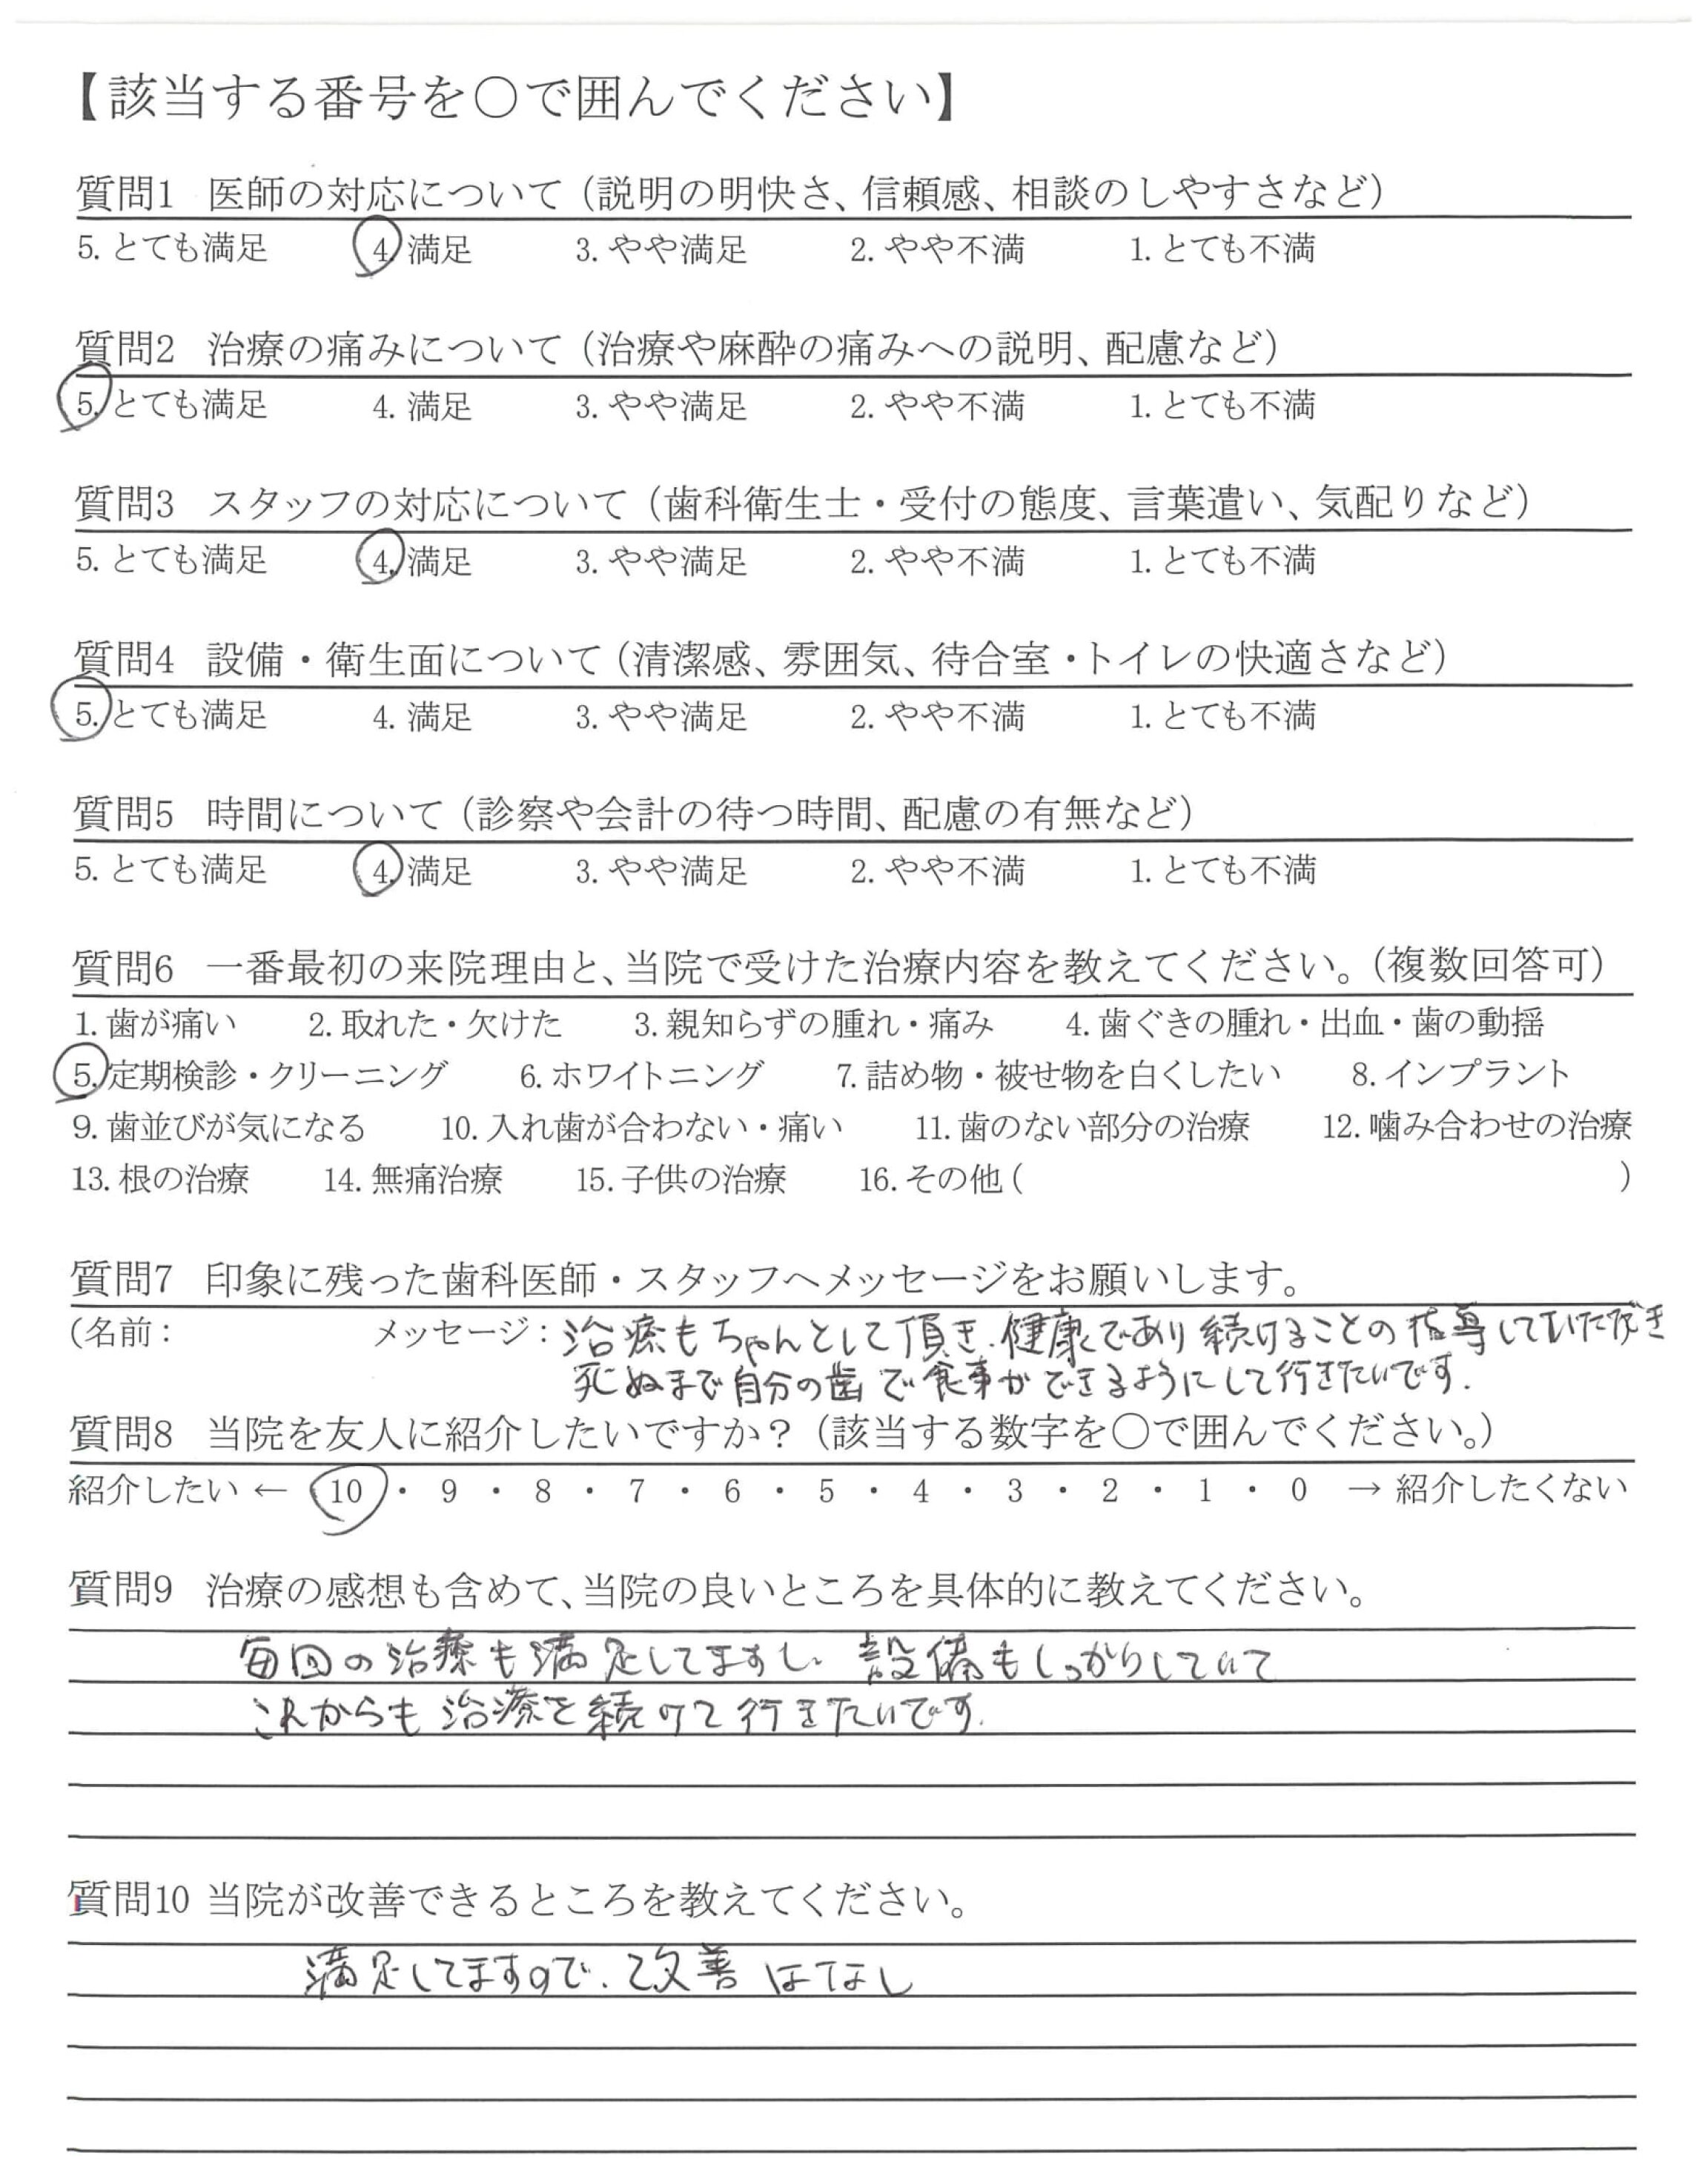 【該当する番号を〇で囲んでください】
質問1 医師の対応について（説明の明快さ、信頼感、相談のしやすさなど）
5. とても満足 4. 満足 3. やや満足 2. やや不満 1. とても不満
質問2 治療の痛みについて（治療や麻酔の痛みへの説明、配慮など）
5. とても満足 4. 満足 3. やや満足 2. やや不満 1. とても不満
質問3 スタッフの対応について（歯科衛生士・受付の態度、言葉遣い、気配りなど）
5. とても満足 4. 満足 3. やや満足 2. やや不満 1. とても不満
質問4 設備・衛生面について（清潔感、雰囲気、待合室・トイレの快適さなど）
5. とても満足 4. 満足 3. やや満足 2. やや不満 1. とても不満
質問5 時間について（診察や会計の待つ時間、配慮の有無など）
5. とても満足 4. 満足 3. やや満足 2. やや不満 1. とても不満
質問6 一番最初の来院理由と、当院で受けた治療内容を教えてください。（複数回答可）
1. 歯が痛い 2. 取れた・欠けた 3. 親知らずの腫れ・痛み 4. 歯ぐきの腫れ・出血・歯の動揺
5. 定期検診・クリーニング 6. ホワイトニング 7. 詰め物・被せ物を白くしたい 8. インプラント
9. 歯並びが気になる 10. 入れ歯が合わない・痛い 11. 歯のない部分の治療 12. 噛み合わせの治療
13. 根の治療 14. 無痛治療 15. 子供の治療 16. その他（ ）
質問7 印象に残った歯科医師・スタッフへメッセージをお願いします。
（名前： メッセージ：治療もちゃんとして頂き、健康であり続けることの指導していただき
死ぬまで自分の歯で食事ができるようにして行きたいです.
質問8 当院を友人に紹介したいですか？（該当する数字を〇で囲んでください。）
紹介したい ← 10 ・ 9 ・ 8 ・ 7 ・ 6 ・ 5 ・ 4 ・ 3 ・ 2 ・ 1 ・ 0 → 紹介したくない
質問9 治療の感想も含めて、当院の良いところを具体的に教えてください。
毎回の治療も満足してますし、設備もしっかりしていて
これからも治療を続けて行きたいです.
質問10 当院が改善できるところを教えてください。
満足してますので、改善はなし